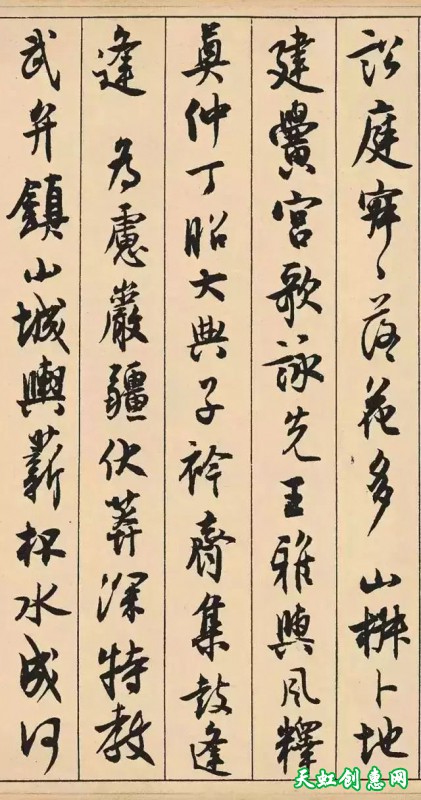 訟庭寂々落花多 山椒卜地
建黌宮歌詠先王雅與風釋
奠仲丁昭大典子衿齊集鼓逢
逢 為慮巖疆伏莽深特教
武弁鎮山城輿薪杯水成何
天虹创惠网